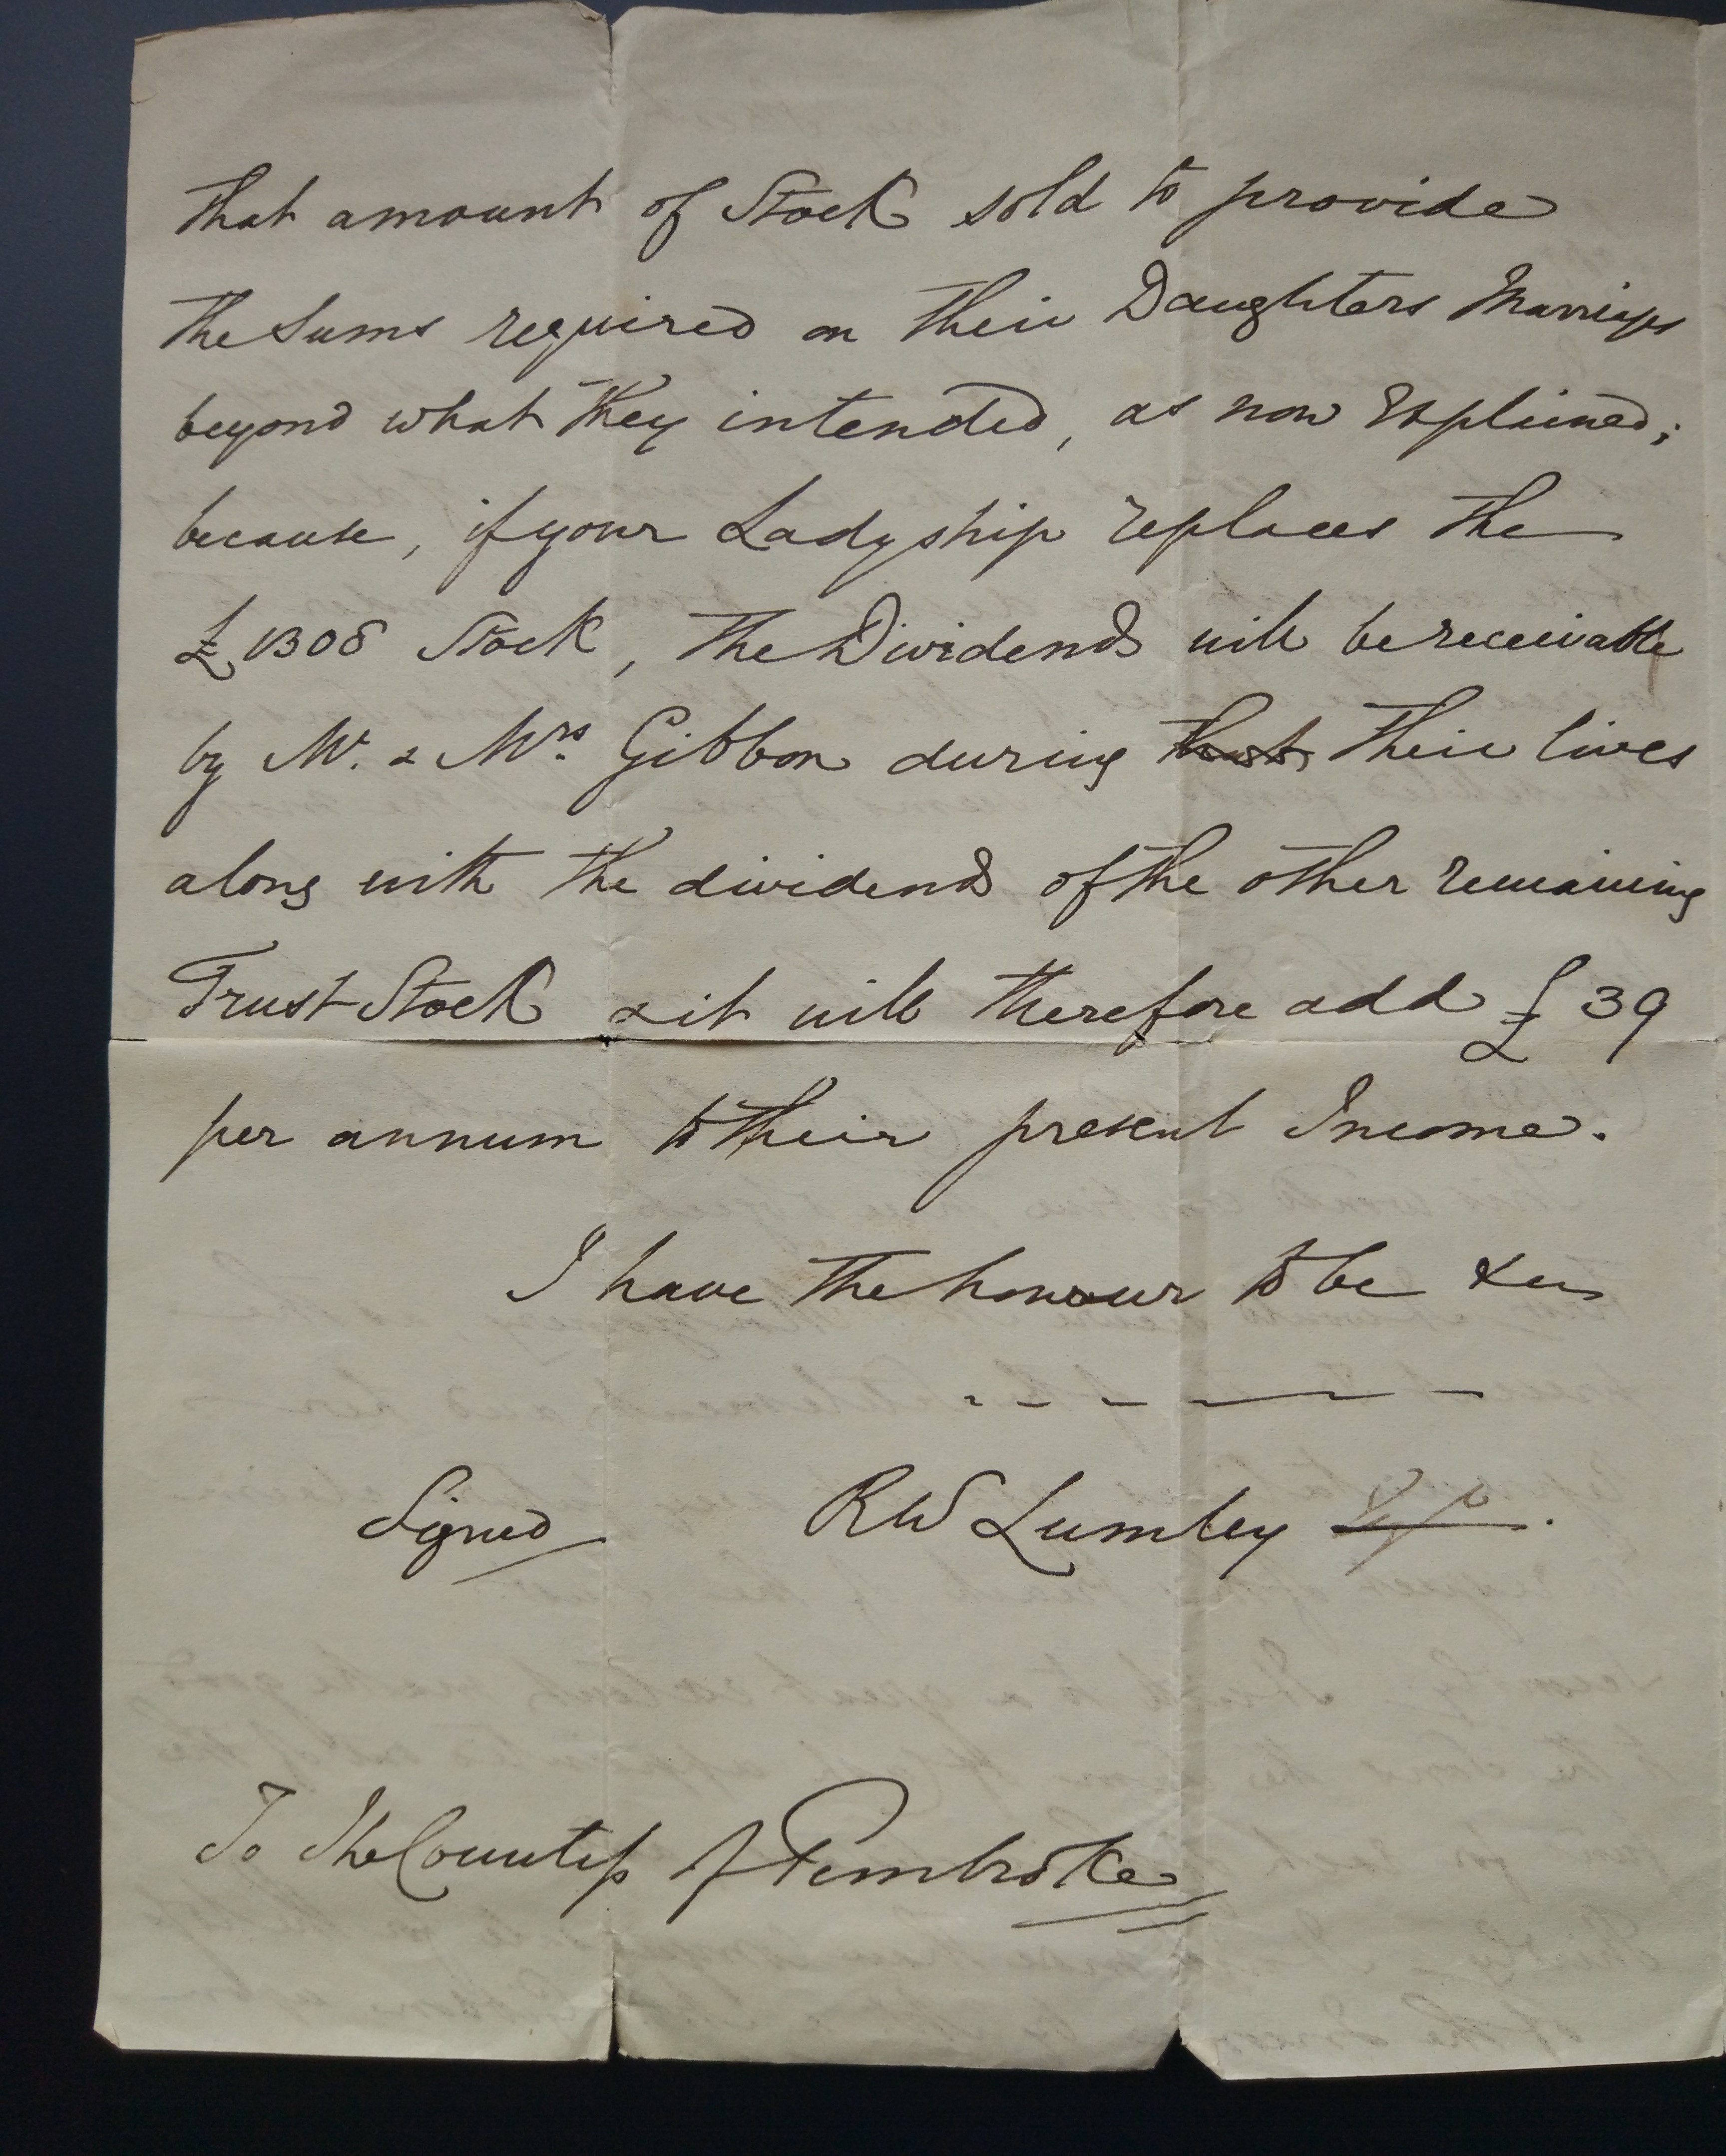 that amount of Stock sold to provide
the Sums required on their Daughters Marriages
beyond what they intended, as now Explained;
because, if your Ladyship replaces the
£1308 Stock, the Dividends will be receivable
by Mr. & Mrs. Gibbon during their lives
along with the dividends of the other remaining
Trust Stock & it will therefore add £39
per annum to their present Income.
I have the honour to be &c
Signed RW Lumley
To The Countess of Pembroke